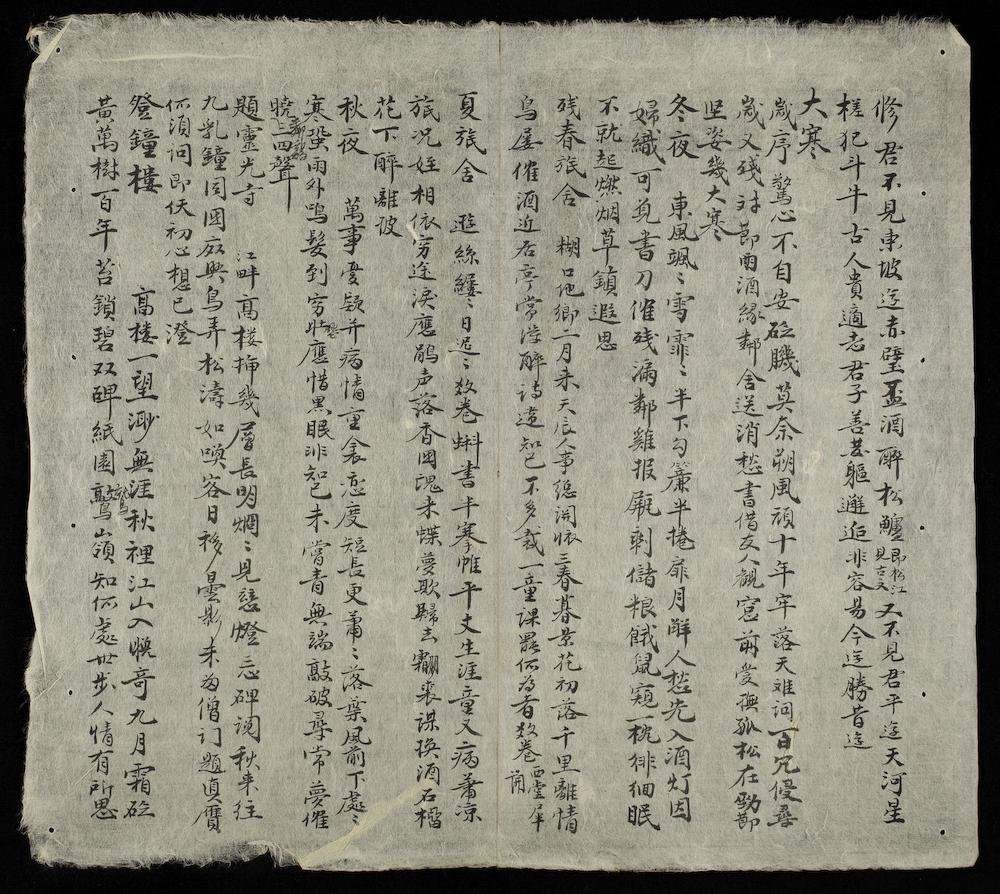 修君不見東坡遊赤壁盃酒醉松鱸即松江見古文又不見君平遊天河星
槎犯斗牛古人貴適志君子善其軀邂逅非容易今遊勝昔遊
大寒
歲序驚心不自安砭膚莫奈朔風頑十年牢落天难问百冗侵尋
歲又殘詩節雨酒緣鄰舍送消愁書借友人觀窓前愛撫孤松在勁節
坚姿幾大寒
冬夜 東風颯〻雪霏〻半下勾簾半捲扉月醉人愁先入酒灯因
婦織可兑書刀催残漏鄰雞报甁剩儲粮餓鼠窺一枕徘徊眠
不就起燃烟草鎖遐思
残春旅舍 糊口他鄉二月来天辰人事總開懷三春暮景花初落千里離情
鳥屡催酒近右亭常学醉詩遠知己不多裁一童課罷何為者数卷西堂
夏旅舍 遊絲纓〻日遲〻数卷蝌書半搴帷平丈生涯童又病蕭凉
旅况姪相依穷途淚應鵑声落香国魂未蝶夢欺歸去翻裘謀换酒石榴
花下醉離披
秋夜 萬事憂疑并病情重衾恋度短長更蕭〻落葉風前下處〻
寒蛩雨外鸣髪到穷愁應惜黑眼非知己未嘗青無端敲破尋常夢催
曉鄰鷄三四聲
題靈光寺 江畔高楼插幾層長明烱〻見慈燈忘碑询秋来往
九乳鐘问国废興鸟弄松濤如喚客日移曇影未為僧门題真贋
何须问即伏初心想已澄
登鐘樓 高楼一望渺無涯秋裡江山入晚奇九月霜砭
黃萬樹百年苔鎖碧双碑紙園鷲山嶺知何處世步人情有所思